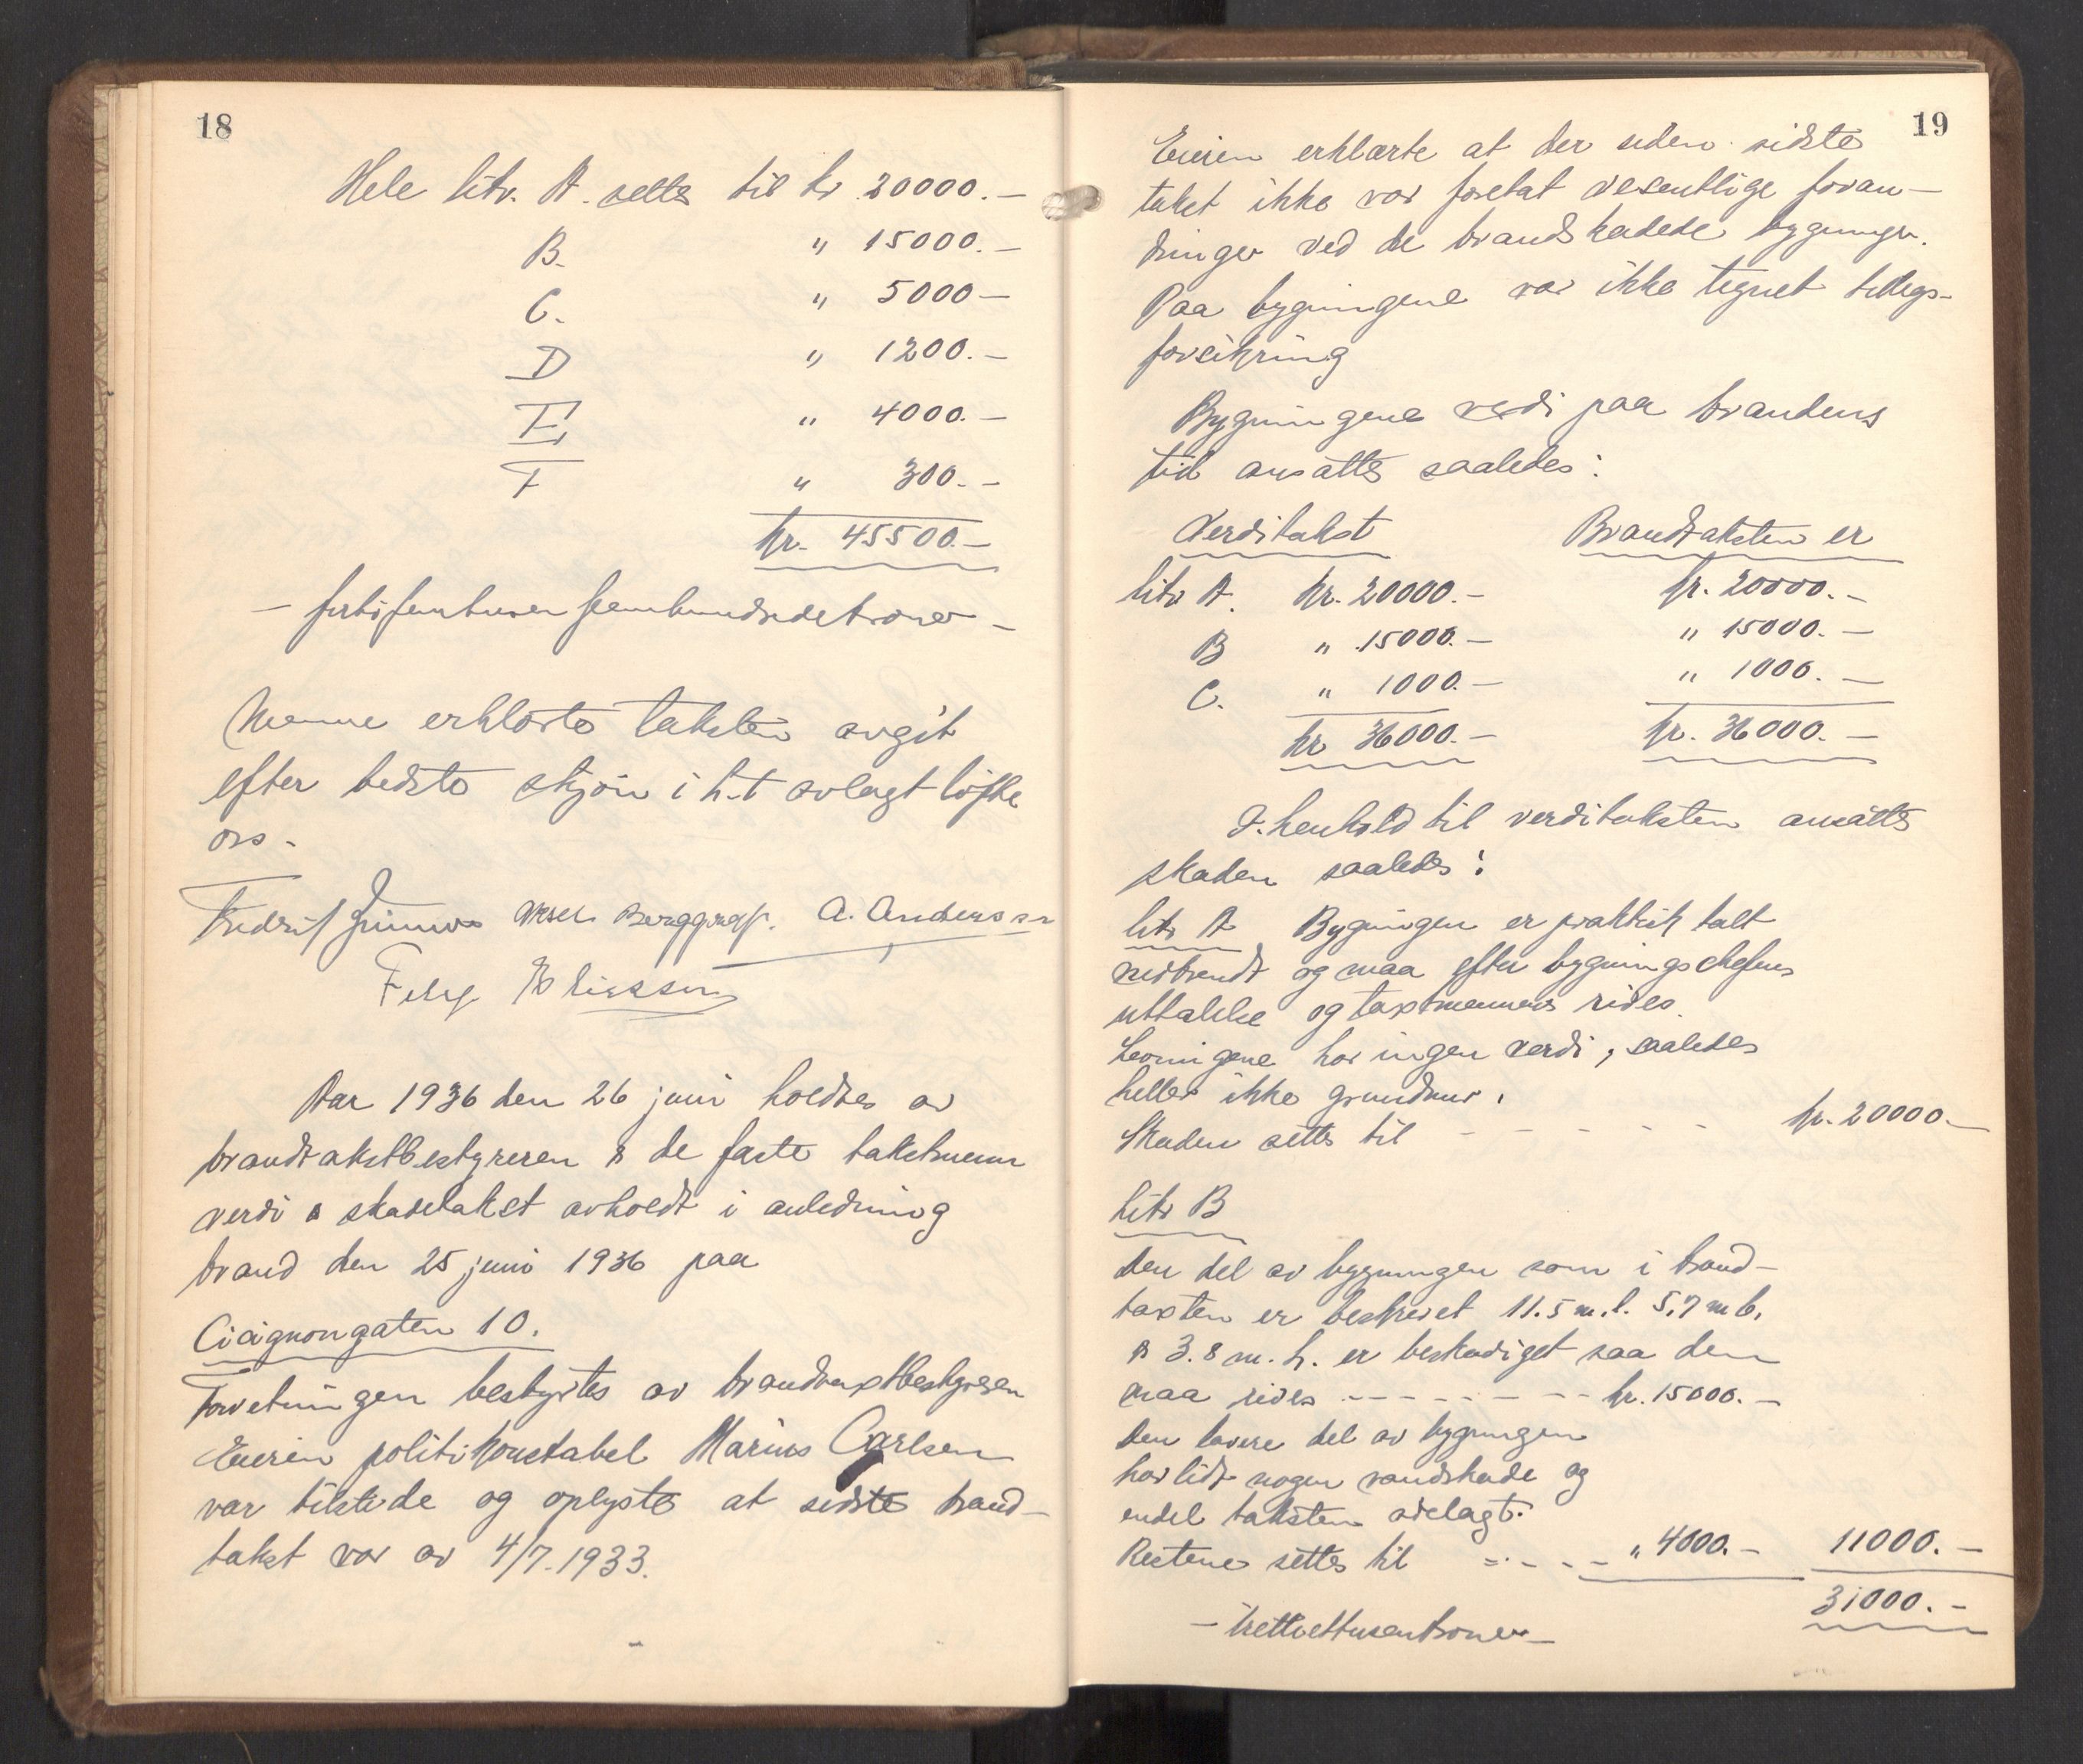 18
Hele litr. A. settes til kr 20000.—
B. " 15000.—
C. " 5000—
D " 1200.—
E " 4000.—
F " 300.—
kr. 45500.—
— fortifemtusen femhundredekroner —
Menne erklærte taksten avgit
efter bedste skjøn i h.t avlagt løfte
oss.
A. Anderssen
Aar 1936 den 26 juni holdtes av
brandtakstbestyreren & de faste takstmenn
verdi & skadetakst avholdt i anledning
brand den 25 juni 1936 paa
Cicignongaten 10.
Forretningen bestyrtes av brandtaxtbestyreren
Eieren politikonstabel Marius Carlsen
var tilstede og oplyste at sidste brand-
takst var av 4/7.1933.
19
Eieren erklærte at der siden sidste
takst ikke var foretat vesentlige foran-
dringer ved de brandskadede bygninger.
Paa bygningene var ikke tegnet tillegs-
forsikring
Bygningene verdi paa brandens
tid ansattes saaledes:
Verditakst Brandtaksten er
litr A. kr. 20000.— kr. 20000.—
B " 15000.— " 15000.—
C. " 1000.— " 1000.—
kr 36000.— kr. 36000.—
I henhold til verditaksten ansattes
skaden saaledes:
litr A Bygningen er praktisk talt
nedbrendt og maa efter bygningschefens
uttalelse og taxtmennenes rives.
Levningene har ingen verdi, saaledes
heller ikke grundmur.
Skaden settes til - - - - - kr. 20000.—
litr B
Den del av bygningen som i brand-
taxten er beskrevet 11.5 m.l. 5.7 m b.
& 3.8 m. h. er beskadiget saa den
maa rives - - - - - - kr. 15000.—
Den lavere del av bygningen
har lidt nogen vandskade og
endel taksten ødelagt.
Restene settes til - - - - " 4000.— 11000.—
31000.—
— trettiettusenkroner —